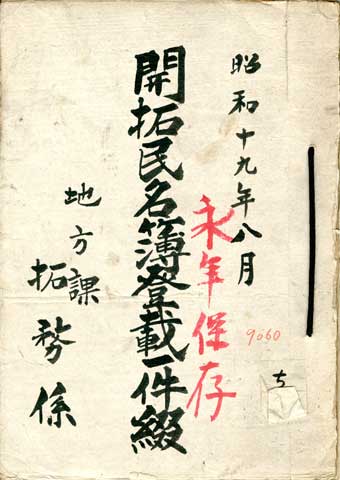 昭和十九年八月
永年保存
9060
ち
開拓民名簿登載一件綴
地方課
拓務係